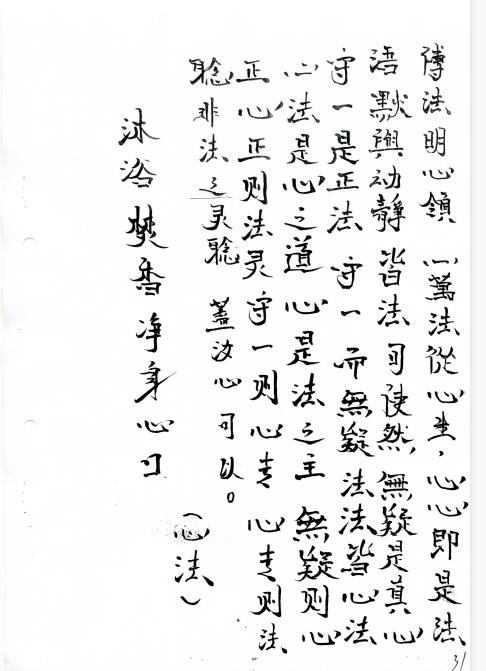 傳法明心領 心萬法從心生，心心即是法
語默與动静 皆法可使然，無疑是真心
守一是正法 守一而無疑 法法皆心法
心法是心之道 心是法之主 無疑则心
正心正则法灵 守一则心专 心专则法
聪 非法之灵聪 蓋汝心可以。
沐浴焚香净身心口
（心法）
31